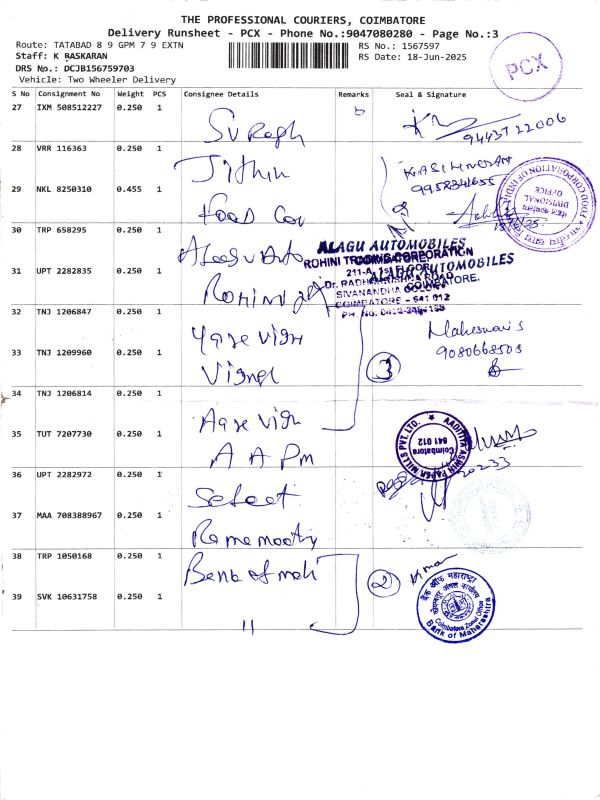 THE PROFESSIONAL COURIERS, COIMBATORE
Delivery Runsheet - PCX - Phone No.:9047080280 - Page No.:3
Route: TATABAD 8 9 GPM 7 9 EXTN
Staff: K BASKARAN
DRS No.: DCJB156759703
Vehicle: Two Wheeler Delivery
RS No.: 1567597
RS Date: 18-Jun-2025
PCX
S No Consignment No Weight PCS Consignee Details Remarks Seal & Signature
27 IXM 508512227 0.250 1
9443722006
28 VRR 116363 0.250 1 Jithin
29 NKL 8250310 0.455 1 Food Cor
FOOD CORPORATION OF INDIA
DIVISIONAL OFFICE
30 TRP 658295 0.250 1 Alagu Auto
ALAGU AUTOMOBILES
COIMBATORE
31 UPT 2282835 0.250 1 Rohini
ROHINI TRADING CORPORATION
ALAGU AUTOMOBILES
COIMBATORE.
SIVANANDHA COLONY
COIMBATORE - 641 012
32 TNJ 1206847 0.250 1
Maheswari S
9080668508
33 TNJ 1209960 0.250 1
3
34 TNJ 1206814 0.250 1
35 TUT 7207730 0.250 1 A A Pm
AADITYA ASWIN PAPER MILLS PVT. LTD.
Coimbatore
641 012
36 UPT 2282972 0.250 1 Select
37 MAA 708388967 0.250 1
38 TRP 1050168 0.250 1 Bank of mah
2
Kumar
39 SVK 10631758 0.250 1 11
बैंक ऑफ महाराष्ट्र
Coimbatore Zonal Office
Bank of Maharashtra